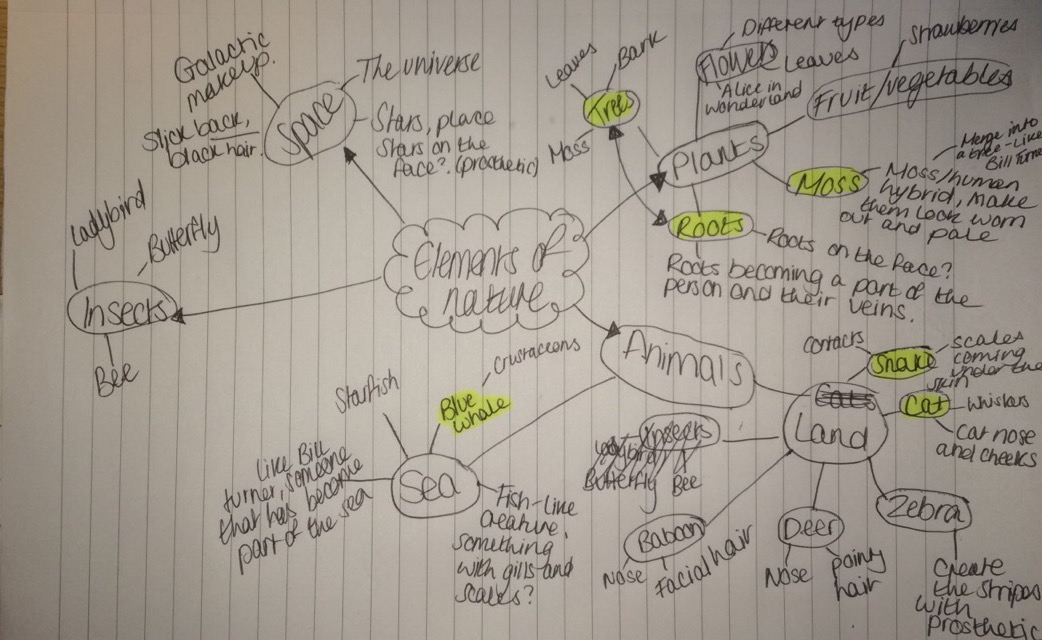 Elements of
nature
Space
Galactic
makeup.
The universe
Slick back,
black hair.
Stars, place
stars on the
face?. (prosthetic)
Insects
Ladybird
Butterfly
Bee
Plants
Trees
Leaves
Bark
Moss
Flowers
Different types
Leaves
Alice in
wonderland
Fruit/vegetables
Strawberries
Moss
Moss/human
hybrid, make
them look worn
out and pale
Merge into
a tree-like
Bill Turner
Roots
Roots on the face?
Roots becoming a part of the
person and their veins.
Animals
Land
Cats
Snake
contacts
scales
coming
under the
skin
Cat
whiskers
Cat nose
and cheeks
Zebra
Create
the stripes
with
prosthetic
Deer
Nose
pointy
hair
Baboon
Nose
Facial hair
Insects
Ladybird
Butterfly
Bee
Sea
Starfish
Blue
whale
crustaceons
Like Bill
turner, someone
that has become
part of the sea
Fish-like
creature,
something
with gills and
scales?